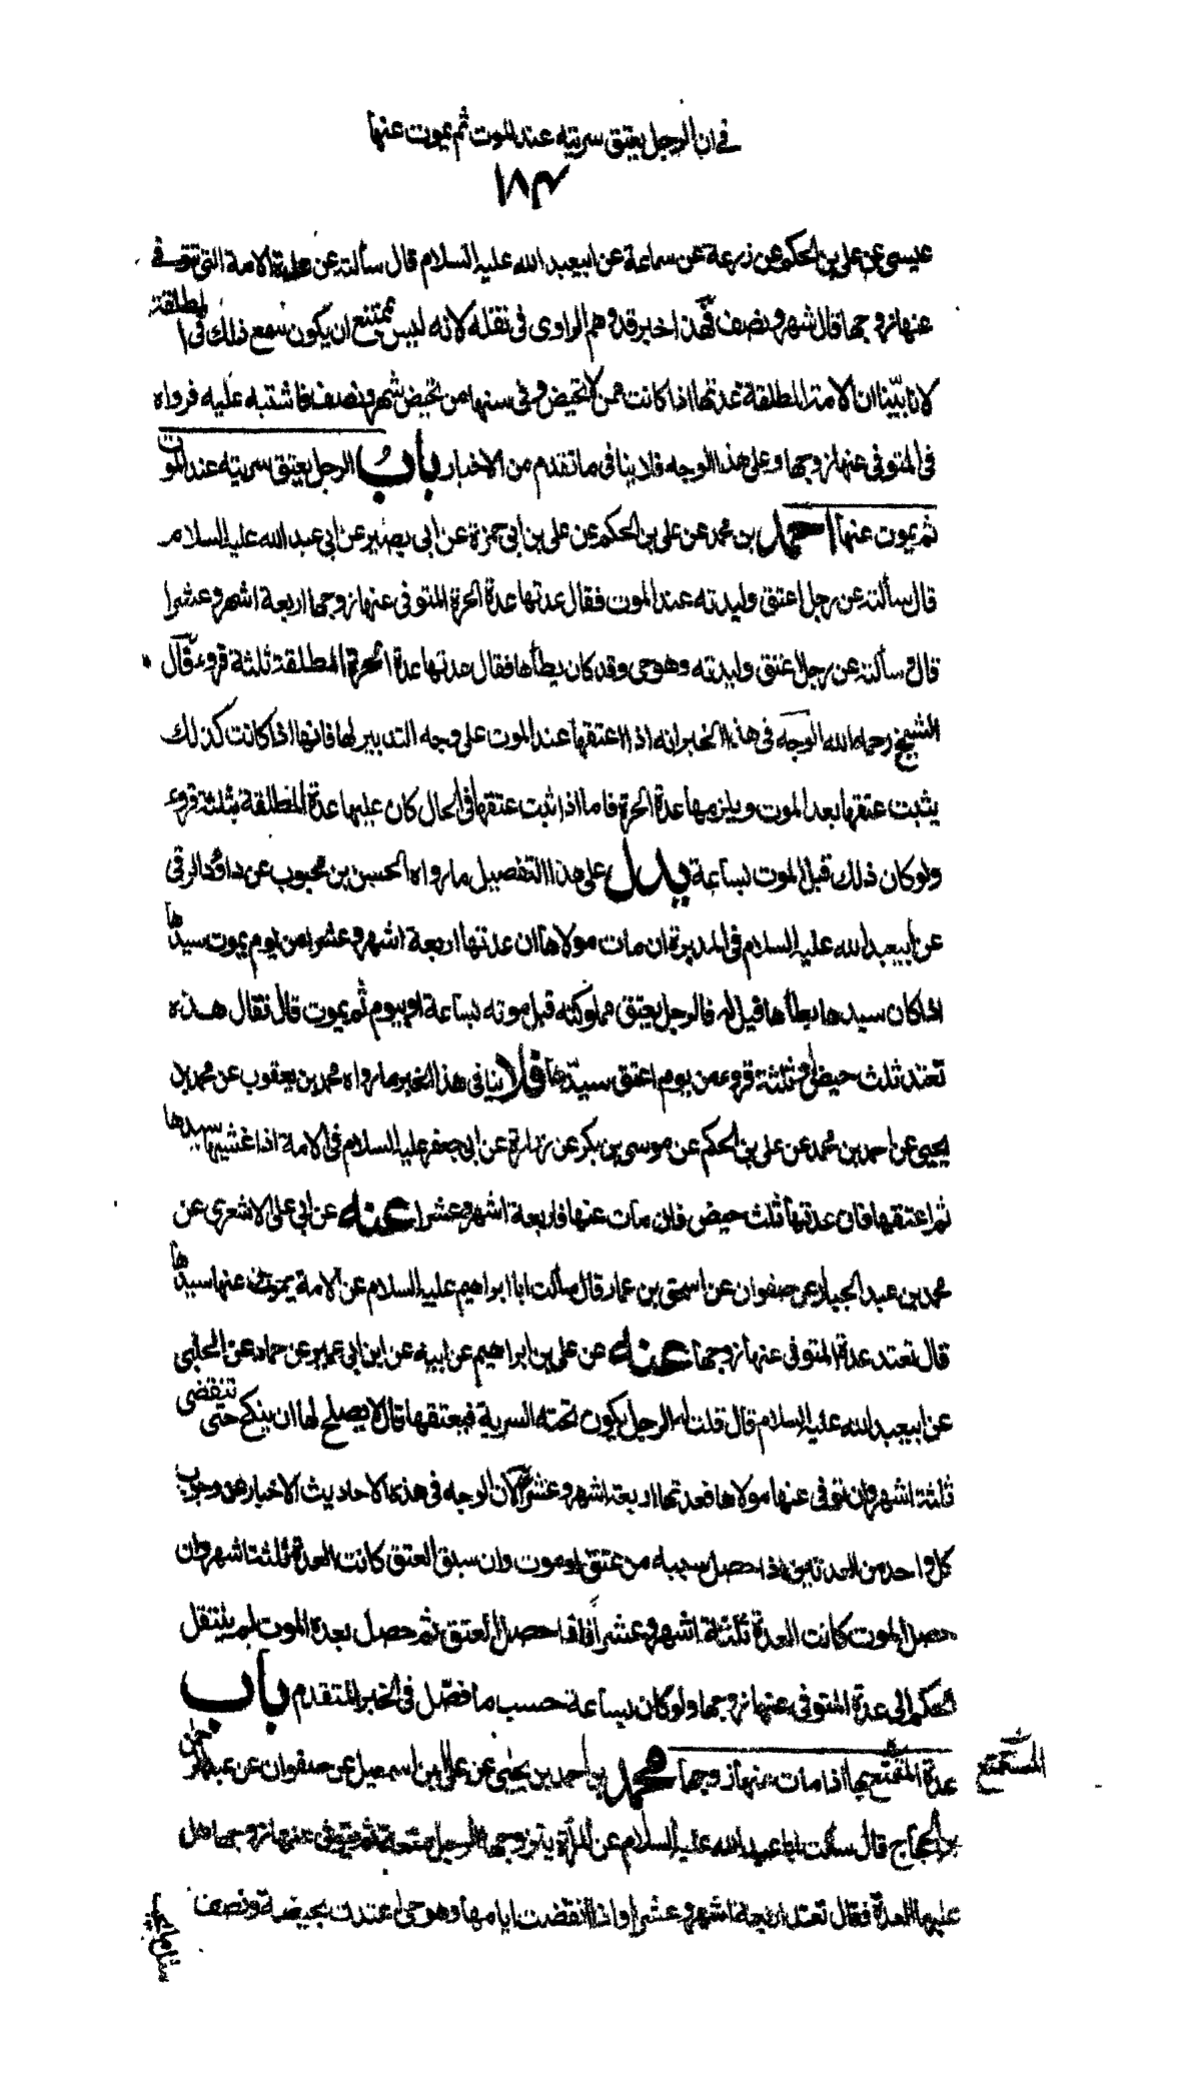 في ان الرجل يعتق سريته عند الموت ثم يموت عنها
١٨٣
عيسى عن علي بن الحكم عن زرعة عن سماعة عن ابيعبد الله عليه السلام قال سألته عن عدة الامة التي تتوفى
عنها زوجها قال شهر ونصف فهذا خبر قد وهم الراوى في نقله لانه ليس يمتنع ان يكون سمع ذلك في المطلقة
لانا بيّنا ان الامة المطلقة عدتها اذا كانت ممن لا تحيض وفى سنها من تحيض شهر ونصف فاشتبه عليه فرواه
في المتوفى عنها زوجها وعلى هذا الوجه فلا ينافى ما تقدم من الاخبار باب الرجل يعتق سريته عند الموت
ثم يموت عنها احمد بن محمد عن علي بن الحكم عن علي بن ابي حمزة عن ابى بصير عن ابي عبد الله عليه السلام
قال سألته عن رجل اعتق وليدته عند الموت فقال عدتها عدة الحرة المتوفى عنها زوجها اربعة اشهر وعشرا
قال وسألته عن رجل اعتق وليدته وهو حى وقد كان يطأها فقال عدتها عدة الحرة المطلقة ثلثة قروء قال
الشيخ رحمه الله الوجه في هذا الخبر انه اذا اعتقها عند الموت على وجه التدبير لها فانها اذا كانت كذلك
يثبت عتقها بعد الموت ويلزمها عدة الحرة فاما اذا ثبت عتقها في الحال كان عليها عدة المطلقة ثلثة قروء
ولو كان ذلك قبل الموت بساعة يدل على هذا التفصيل ما رواه الحسن بن محبوب عن داود الرقي
عن ابيعبد الله عليه السلام في المدبرة ان مات مولاها ان عدتها اربعة اشهر وعشرا من يوم يموت سيدها
اذا كان سيدها يطأها قيل له فالرجل يعتق مملوكته قبل موته بساعة او بيوم ثم يموت قال فقال هذه
تعتد ثلث حيض او ثلثة قروء من يوم اعتق سيدها فلا ينافى هذا الخبر ما رواه محمد بن يعقوب عن محمد بن
يحيى عن احمد بن محمد عن علي بن الحكم عن موسى بن بكر عن زرارة عن ابي جعفر عليه السلام في الامة اذا غشيها سيدها
ثم اعتقها فان عدتها ثلث حيض فان مات عنها فاربعة اشهر وعشرا عنه عن ابي على الاشعرى عن
محمد بن عبد الجبار عن صفوان عن اسحق بن عمار قال سألت ابا ابراهيم عليه السلام عن الامة يموت عنها سيدها
قال تعتد عدة المتوفى عنها زوجها عنه عن علي بن ابراهيم عن ابيه عن ابن ابي عمير عن حماد عن الحلبي
عن ابيعبد الله عليه السلام قال قلت له الرجل يكون تحته السرية فيعتقها قال لا يصلح لها ان ينكح حتى تنقضى
ثلثة اشهر وان توفى عنها مولاها فعدتها اربعة اشهر وعشرا لان الوجه في هذه الاحاديث الاخبار عن وجوب
كل واحد من العدتين اذا حصل سببه من عتق او موت وان سبق العتق كانت العدة ثلثة اشهر وان
حصل الموت كانت العدة ثلثة اشهر وعشرا فاذا حصل العتق ثم حصل بعده الموت لم ينتقل
الحكم الى عدة المتوفى عنها زوجها ولو كان بساعة حسب ما فصّل في الخبر المتقدم باب
عدة المتمتع بها اذا مات عنها زوجها محمد بن احمد بن يحيى عن علي بن اسمعيل عن صفوان عن عبد الرحمن
المستمتع
بن الحجاج قال سألت ابا عبد الله عليه السلام عن المرأة يتزوجها الرجل متعة ثم يتوفى عنها زوجها هل
عليها العدة فقال تعتد اربعة اشهر وعشرا واذا انقضت ايامها وهو حى اعتدت بحيضة ونصف
مثل ما يجب